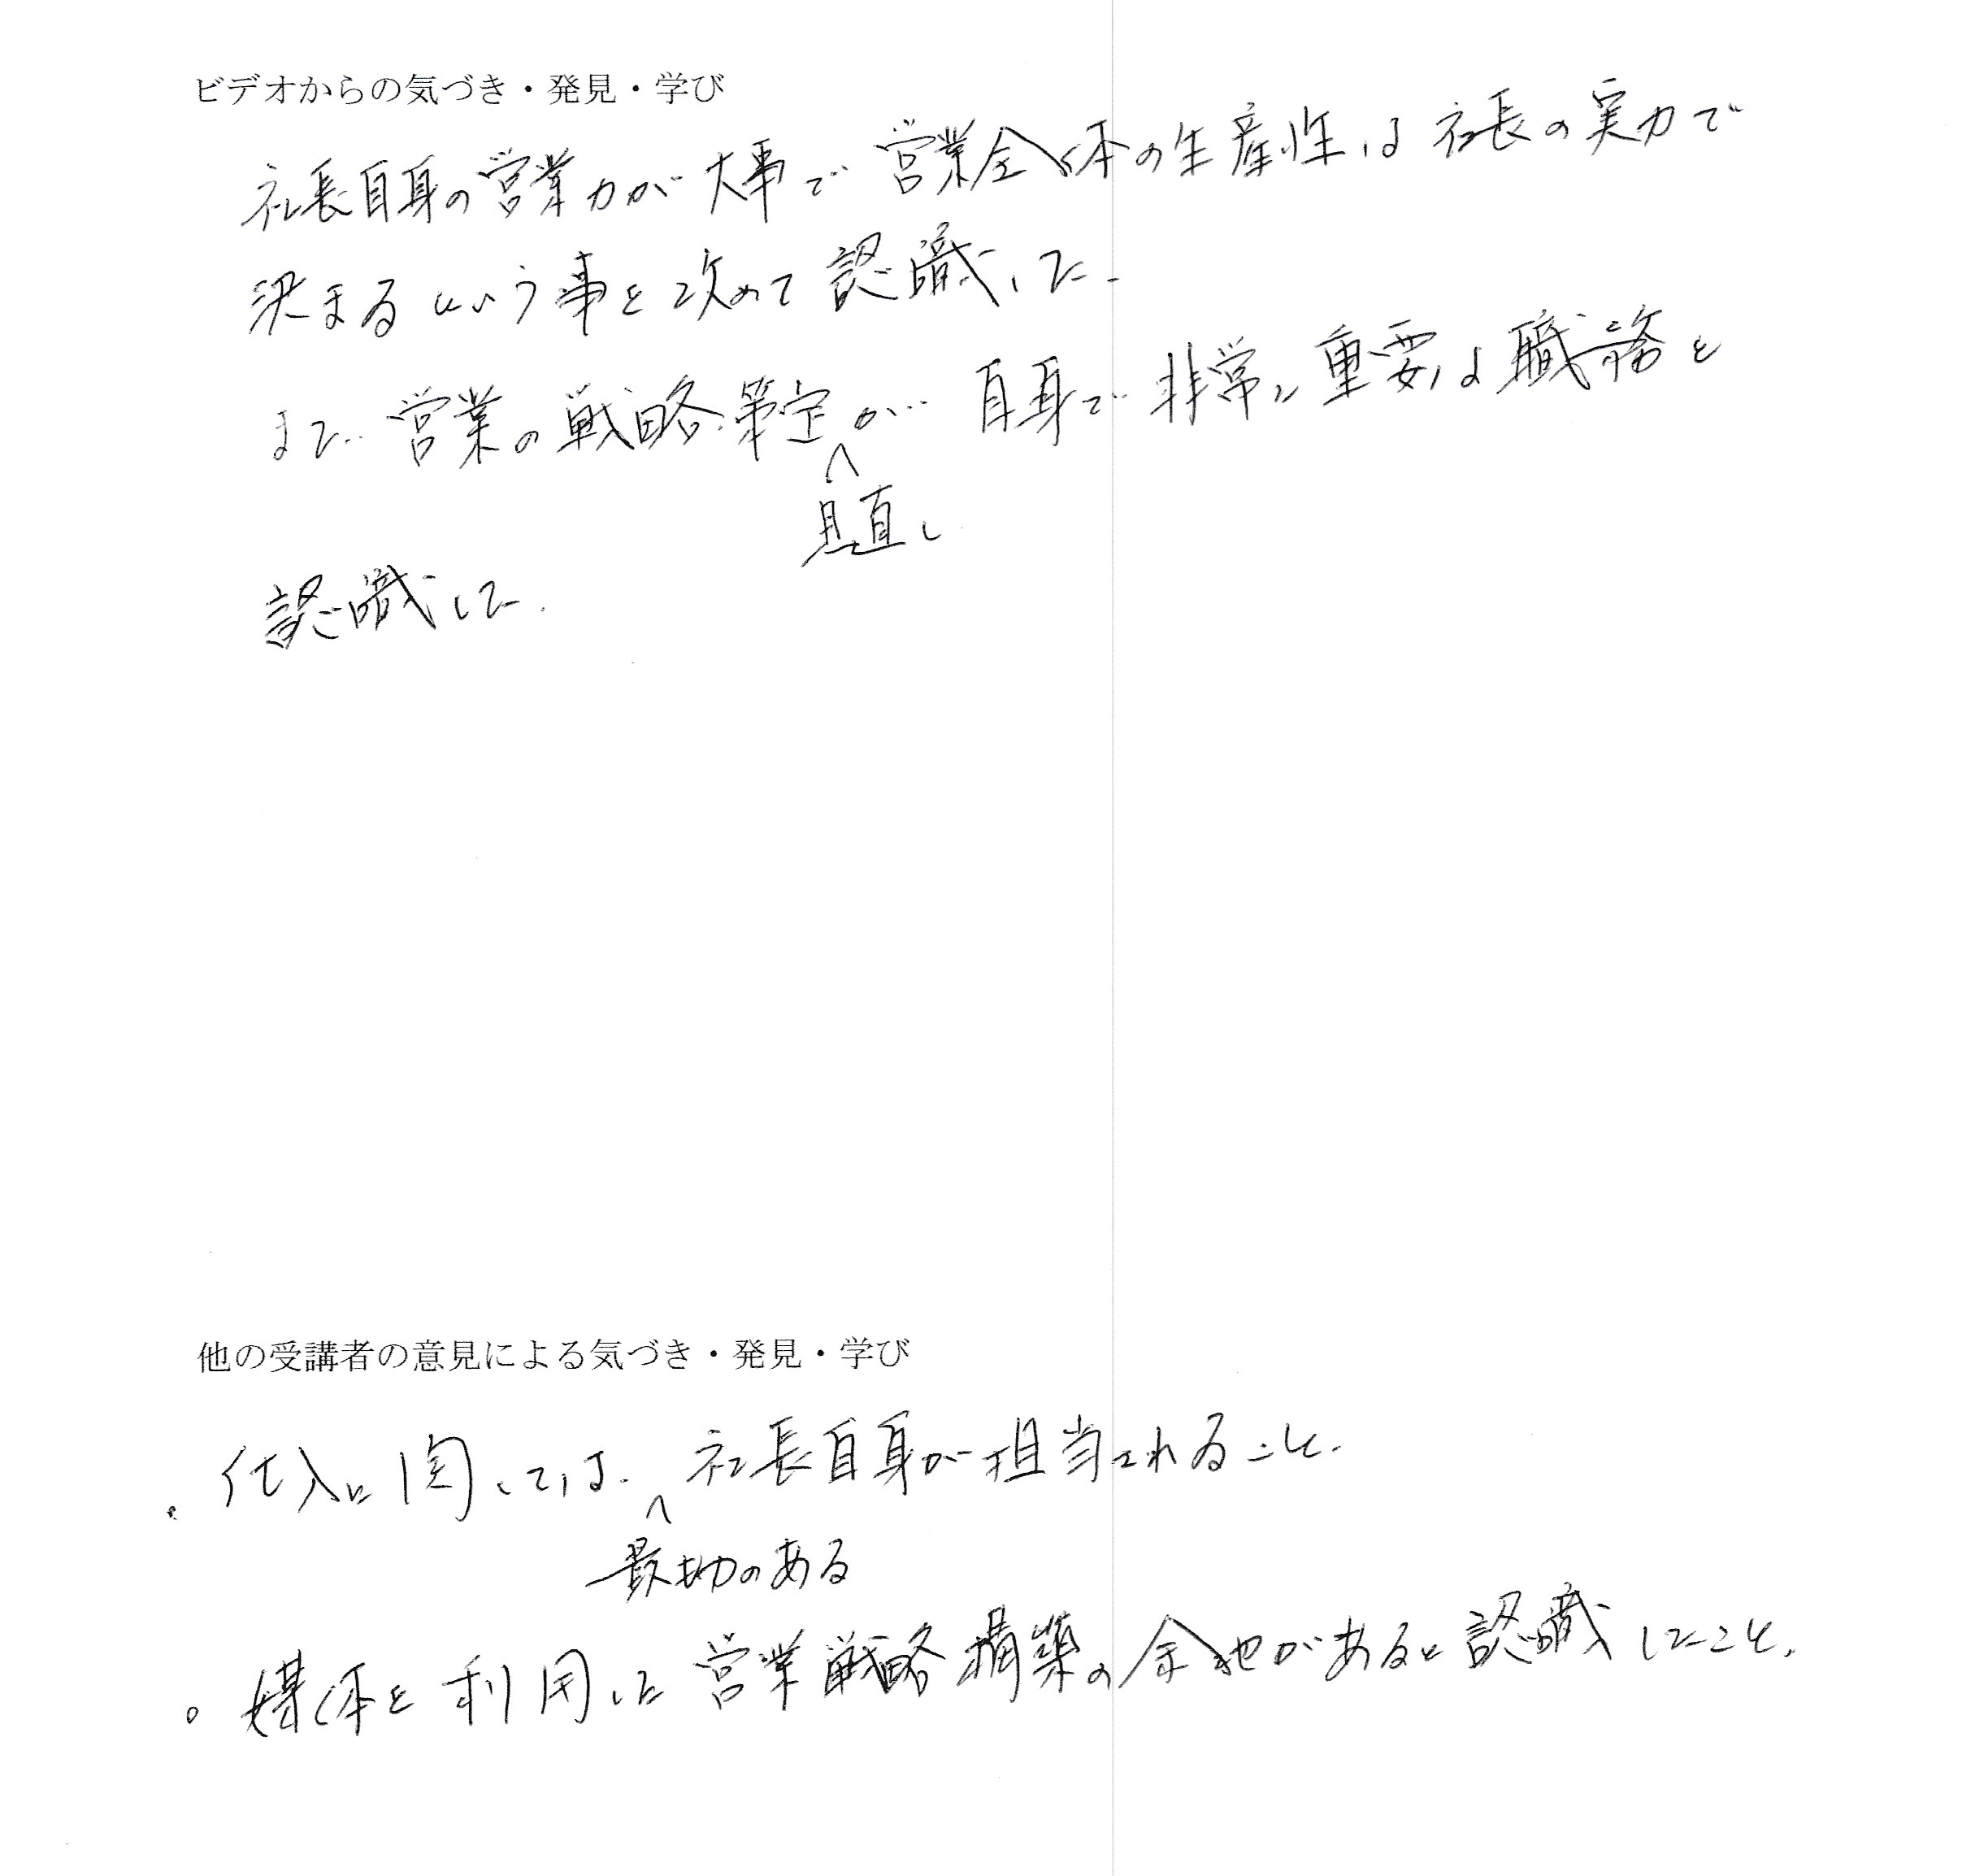 ビデオからの気づき・発見・学び
社長自身の営業力が大事で営業全体の生産性は社長の実力で
決まるという事を改めて認識した.
また、営業の戦略策定が自身で非常に重要な職務と
見直し
認識した.
他の受講者の意見による気づき・発見・学び
・仕入に関しては、社長自身が担当されること.
のある
。媒体を利用した営業戦略構築の余地があると認識したこと.